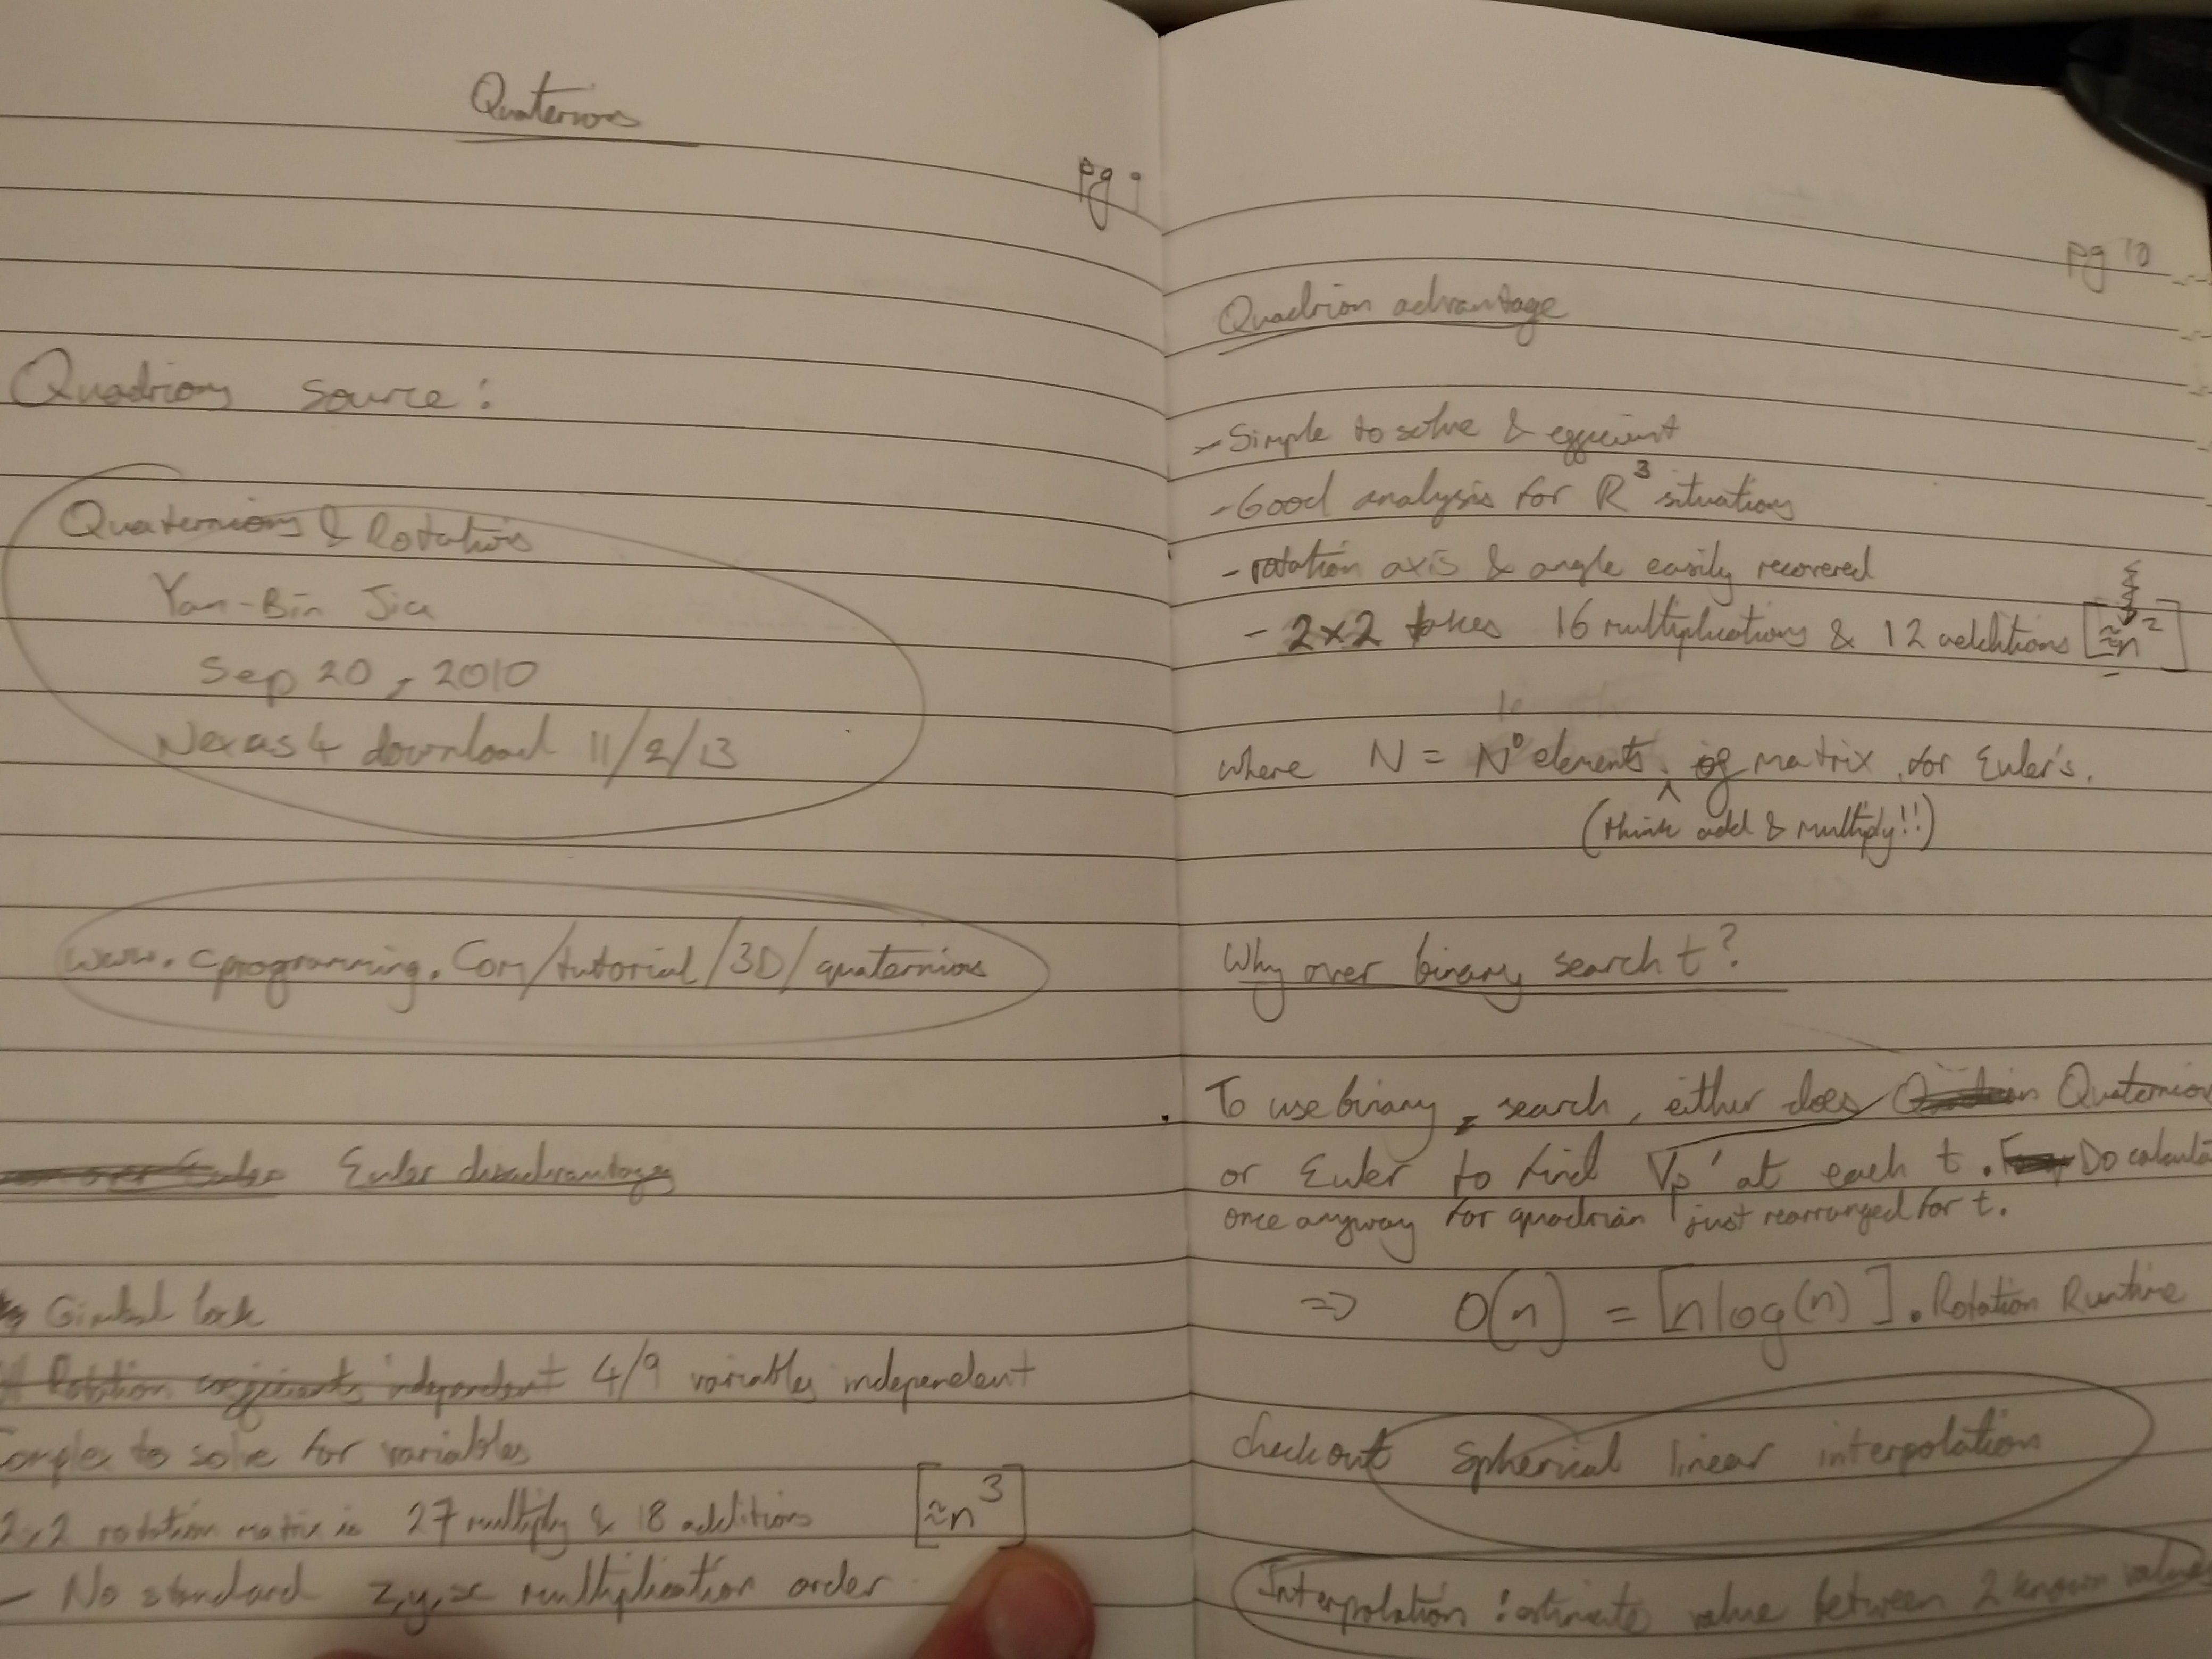 Quaternions
pg 9
Quadrions source:
Quaternions & Rotations
Yan-Bin Jia
Sep 20, 2010
Nexas 4 download 11/2/13
www.cprogramming.com/tutorial/3D/quaternions
over Euler Euler disadvantages
Gimbal lock
Rotation coefficients independent 4/9 variables independent
Complex to solve for variables
2x2 rotation matrix is 27 multiply & 18 additions [≈n³]
- No standard z,y,x multiplication order
pg 10
Quadrion advantage
- Simple to solve & efficient
- Good analysis for R³ situations
- rotation axis & angle easily recovered
- 2x2 takes 16 multiplications & 12 additions [≈n²]
where N = Nº elements of matrix for Euler's.
(think add & multiply!!)
Why over binary search t?
To use binary search, either does Quaternions
or Euler to find Vp' at each t. Do calcula
once anyway for quadrian just rearranged for t.
=> O(n) = [n log(n)]. Rotation Runtime
check out Spherical linear interpolation
Interpolation: estimate value between 2 known values